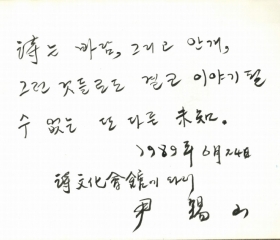 詩는 바람, 그리고 안개,
그런 것들로도 결코 이야기될
수 없는 또 다른 未知.
1989年 6月 24日
詩文化會館에 와서
尹錫山